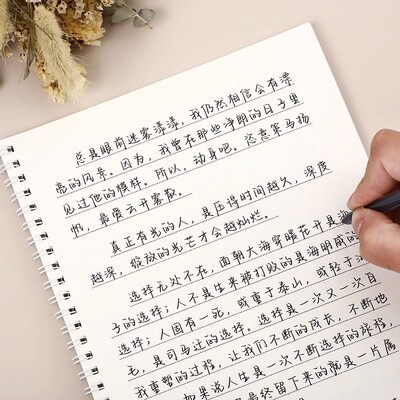 总是眼前迷雾漾漾，我仍然相信会有漂
亮的风景。因为，我曾在那些净明的日子里
见过他的模样。所以，动身吧。恣意策马扬
帆，最爱云开雾散。
真正有光的人，是压得时间越久，深度
越深，绽放的光芒才会越灿烂。
选择无处不在，面朝大海穿暖花开是海
子的选择；人不是生来被打败的是海明威的
选择；人固有一死，或重于泰山，或轻于
毛，是司马迁的选择。选择是一次又一次自
我重塑的过程，让我们不断的成长，不断地
如果说人生是一次不断选择的旅程，
最终留下来的就是一片属